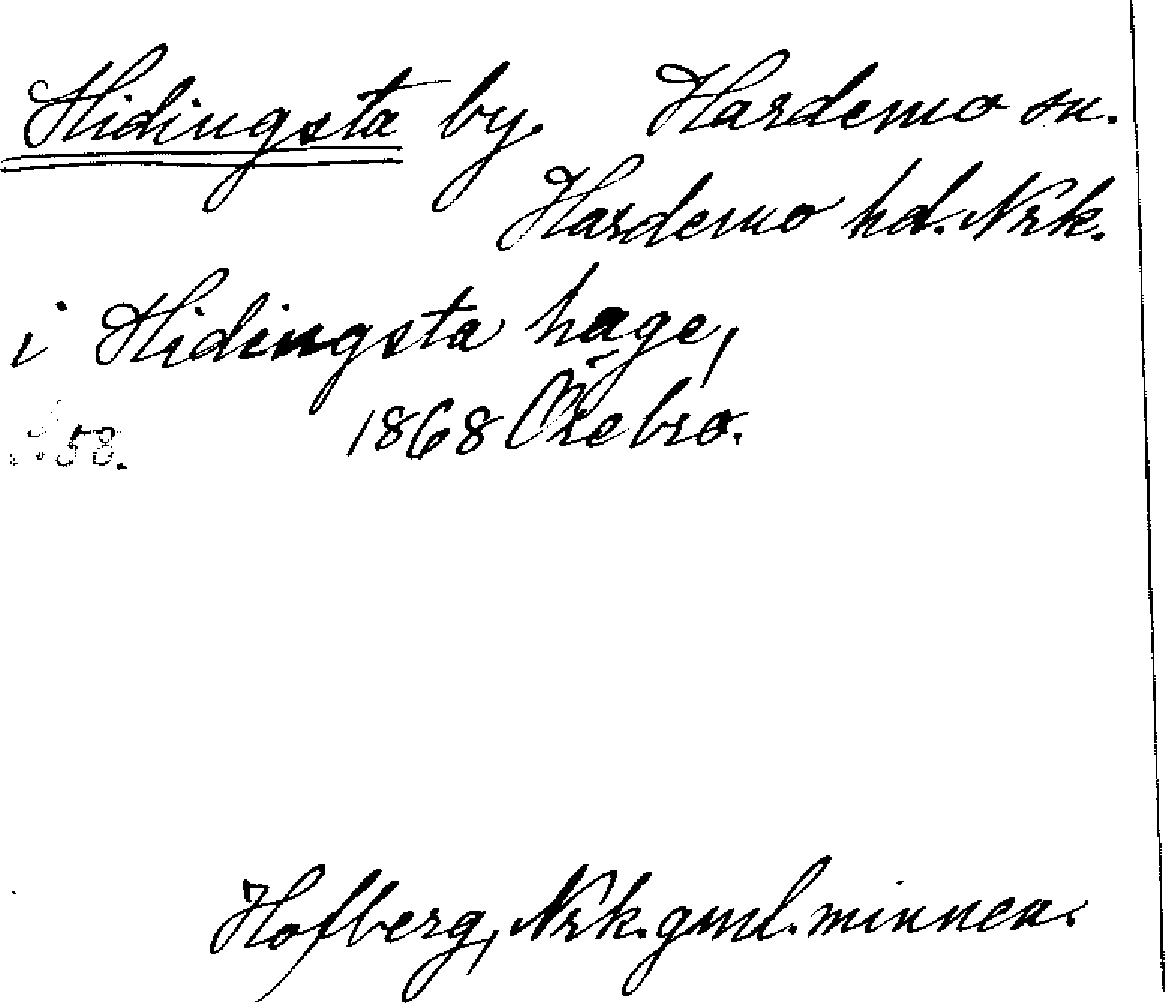 Hidingsta by. Hardemo sn.
Hardemo hd. Nrk.
i Hidingsta hage,
s 58. 1868 Örebro.
Hofberg, Nrk. gml. minnen.